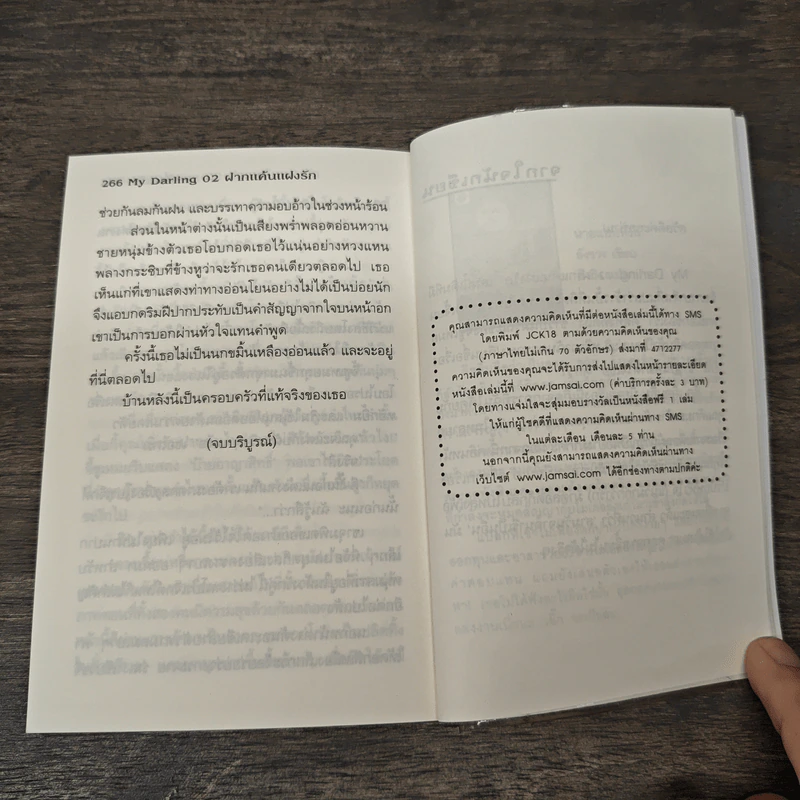 266 My Darling 02 ฝากแค้นแฝงรัก
ช่วยกันลมกันฝน และบรรเทาความอบอ้าวในช่วงหน้าร้อน
ส่วนในหน้าต่างนั้นเป็นเสียงพร่ำพลอดอ่อนหวาน
ชายหนุ่มข้างตัวเธอโอบกอดเธอไว้แน่นอย่างหวงแหน
พลางกระซิบที่ข้างหูว่าจะรักเธอคนเดียวตลอดไป เธอ
เห็นแก่ที่เขาแสดงท่าทางอ่อนโยนอย่างไม่ได้เป็นบ่อยนัก
จึงแอบกดริมฝีปากประทับเป็นคำสัญญาจากใจบนหน้าอก
เขาเป็นการบอกผ่านหัวใจแทนคำพูด
ครั้งนี้เธอไม่เป็นนกขมิ้นเหลืองอ่อนแล้ว และจะอยู่
ที่นี่ตลอดไป
บ้านหลังนี้เป็นครอบครัวที่แท้จริงของเธอ
(จบบริบูรณ์)
จากใจนักเขียน
คุณสามารถแสดงความคิดเห็นที่มีต่อหนังสือเล่มนี้ได้ทาง SMS
โดยพิมพ์ JCK18 ตามด้วยความคิดเห็นของคุณ
(ภาษาไทยไม่เกิน 70 ตัวอักษร) ส่งมาที่ 4712277
ความคิดเห็นของคุณจะได้รับการส่งไปแสดงในหน้ารายละเอียด
หนังสือเล่มนี้ที่ www.jamsai.com (ค่าบริการครั้งละ 3 บาท)
โดยทางแจ่มใสจะสุ่มมอบรางวัลเป็นหนังสือฟรี 1 เล่ม
ให้แก่ผู้โชคดีที่แสดงความคิดเห็นผ่านทาง SMS
ในแต่ละเดือน เดือนละ 5 ท่าน
นอกจากนี้คุณยังสามารถแสดงความคิดเห็นผ่านทาง
เว็บไซต์ www.jamsai.com ได้อีกช่องทางตามปกติค่ะ